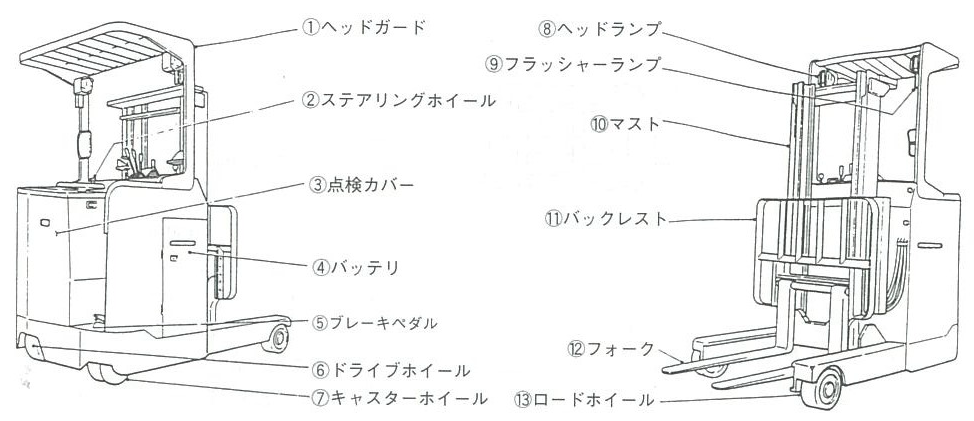 ①ヘッドガード
②ステアリングホイール
③点検カバー
④バッテリ
⑤ブレーキペダル
⑥ドライブホイール
⑦キャスターホイール
⑧ヘッドランプ
⑨フラッシャーランプ
⑩マスト
⑪バックレスト
⑫フォーク
⑬ロードホイール